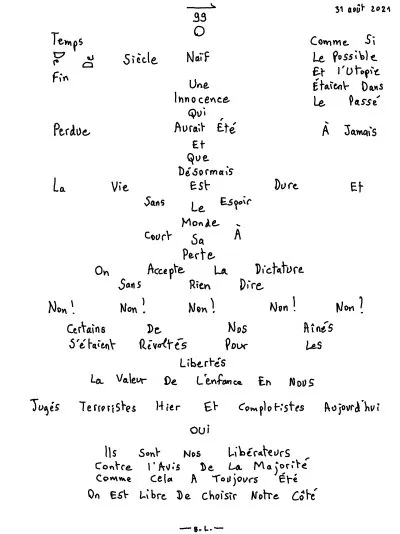 99
31 août 2021
O
Temps
Comme Si
Siècle Naïf
Le Possible
Fin
Et l'Utopie
Une
Étaient Dans
Innocence
Le Passé
Qui
Perdue Aurait Été À Jamais
Et
Que
Désormais
La Vie Est Dure Et
Sans Le Espoir
Monde
Court Sa À
Perte
On Accepte La Dictature
Sans Rien Dire
Non! Non! Non! Non! Non?
Certains De Nos Aînés
S'étaient Révoltés Pour Les
Libertés
La Valeur De L'enfance En Nous
Jugés Terroristes Hier Et Complotistes Aujourd'hui
OUI
Ils Sont Nos Libérateurs
Contre l'Avis De La Majorité
Comme Cela A Toujours Été
On Est Libre De Choisir Notre Côté
— B.L. —